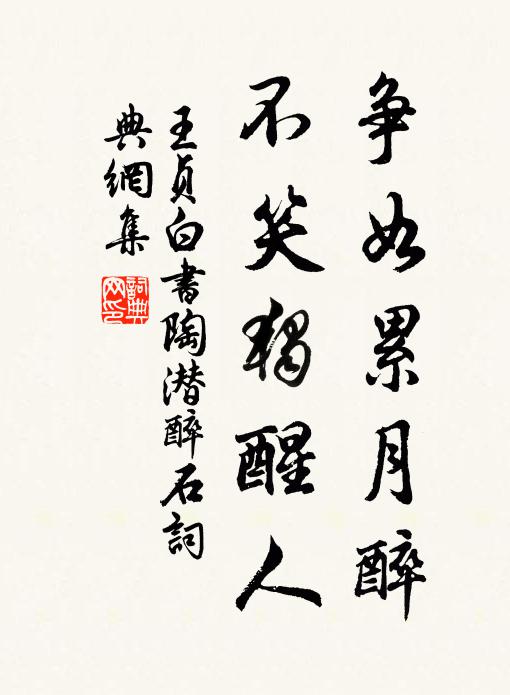 争如累月醉
不笑獨醒人
王貞白書陶潜醉石詞
典網集
詞典
网印